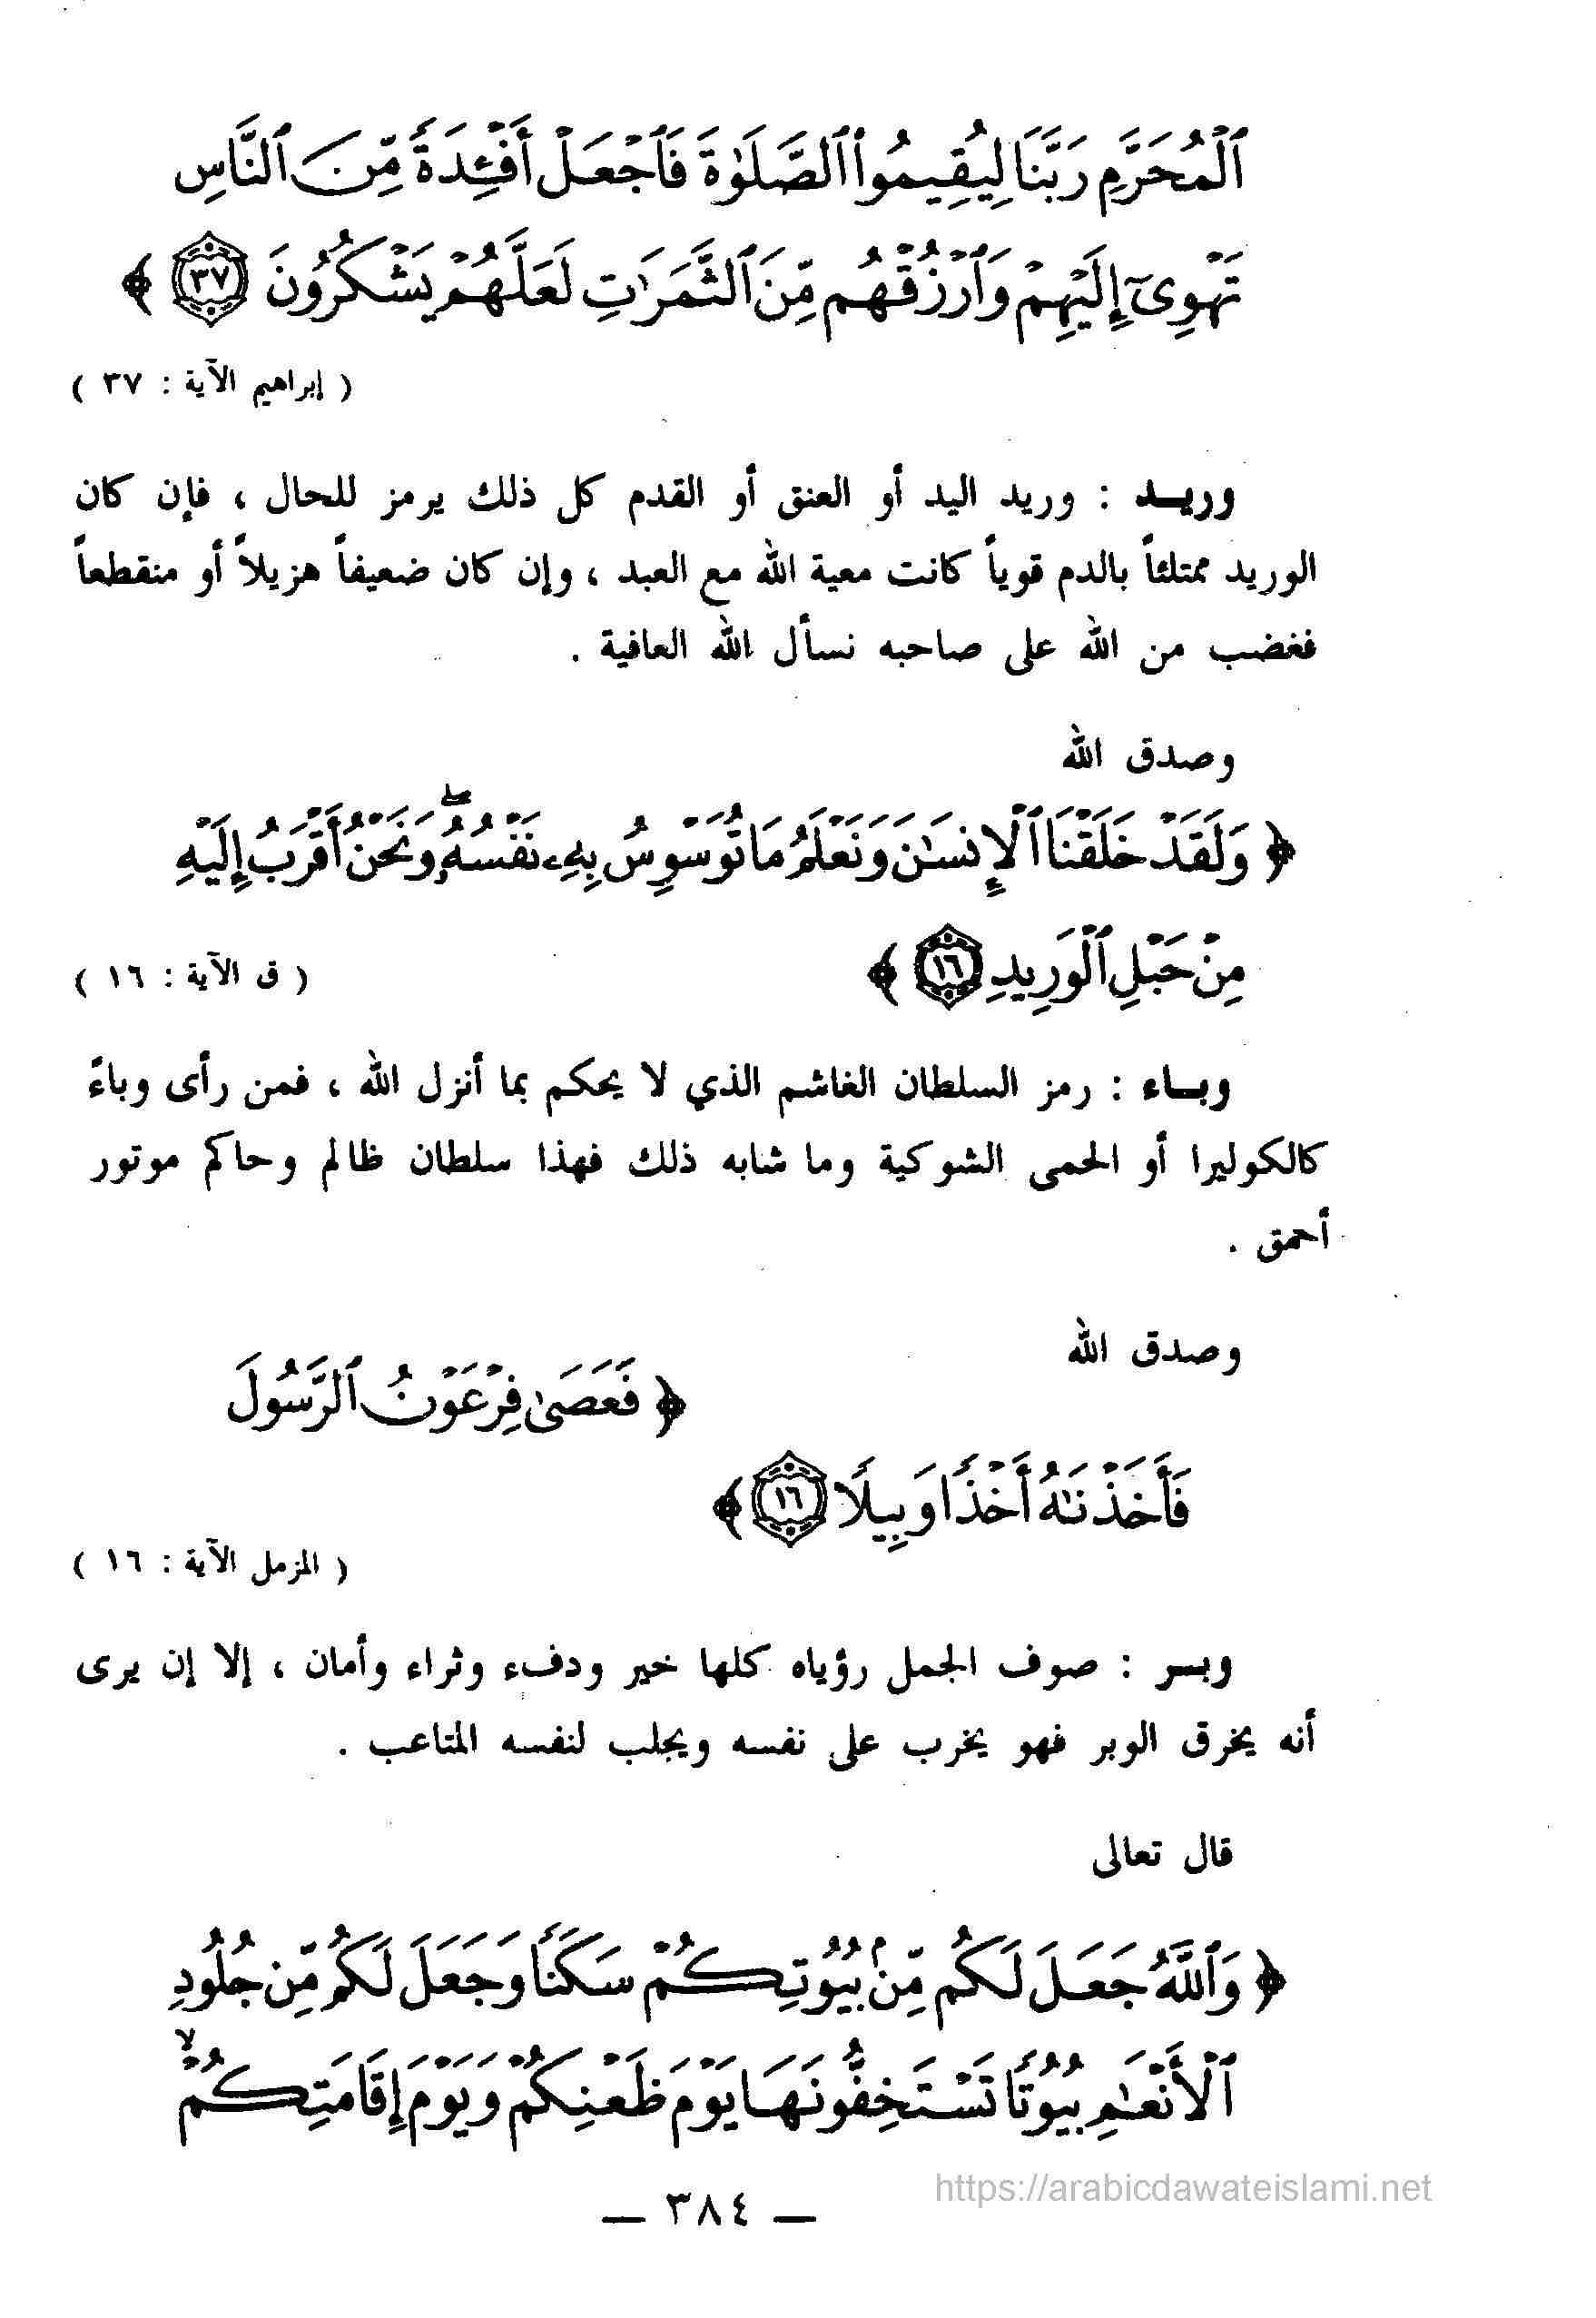 ٱلْمُحَرَّمِ رَبَّنَا لِيُقِيمُوا۟ ٱلصَّلَوٰةَ فَٱجْعَلْ أَفْـِٔدَةً مِّنَ ٱلنَّاسِ
تَهْوِىٓ إِلَيْهِمْ وَٱرْزُقْهُم مِّنَ ٱلثَّمَرَٰتِ لَعَلَّهُمْ يَشْكُرُونَ ٣٧ ﴾
( إبراهيم الآية : ٣٧ )
وريـد : وريد اليد أو العنق أو القدم كل ذلك يرمز للحال ، فإن كان
الوريد ممتلئاً بالدم قوياً كانت معية الله مع العبد ، وإن كان ضعيفاً هزيلاً أو منقطعاً
فغضب من الله على صاحبه نسأل الله العافية .
وصدق الله
﴿ وَلَقَدْ خَلَقْنَا ٱلْإِنسَٰنَ وَنَعْلَمُ مَا تُوَسْوِسُ بِهِۦ نَفْسُهُۥ ۖ وَنَحْنُ أَقْرَبُ إِلَيْهِ
مِنْ حَبْلِ ٱلْوَرِيدِ ١٦ ﴾ ( ق الآية : ١٦ )
وبـاء : رمز السلطان الغاشم الذي لا يحكم بما أنزل الله ، فمن رأى وباءً
كالكوليرا أو الحمى الشوكية وما شابه ذلك فهذا سلطان ظالم وحاكم موتور
أحمق .
وصدق الله
﴿ فَعَصَىٰ فِرْعَوْنُ ٱلرَّسُولَ
فَأَخَذْنَٰهُ أَخْذًا وَبِيلًا ١٦ ﴾
( المزمل الآية : ١٦ )
وبـر : صوف الجمل رؤياه كلها خير ودفء وثراء وأمان ، إلا إن يرى
أنه يخرق الوبر فهو يخرب على نفسه ويجلب لنفسه المتاعب .
قال تعالى
﴿ وَٱللَّهُ جَعَلَ لَكُم مِّنۢ بُيُوتِكُمْ سَكَنًا وَجَعَلَ لَكُم مِّن جُلُودِ
ٱلْأَنْعَٰمِ بُيُوتًا تَسْتَخِفُّونَهَا يَوْمَ ظَعْنِكُمْ وَيَوْمَ إِقَامَتِكُمْ ۙ
— ٣٨٤ —
https://arabicdawateislami.net